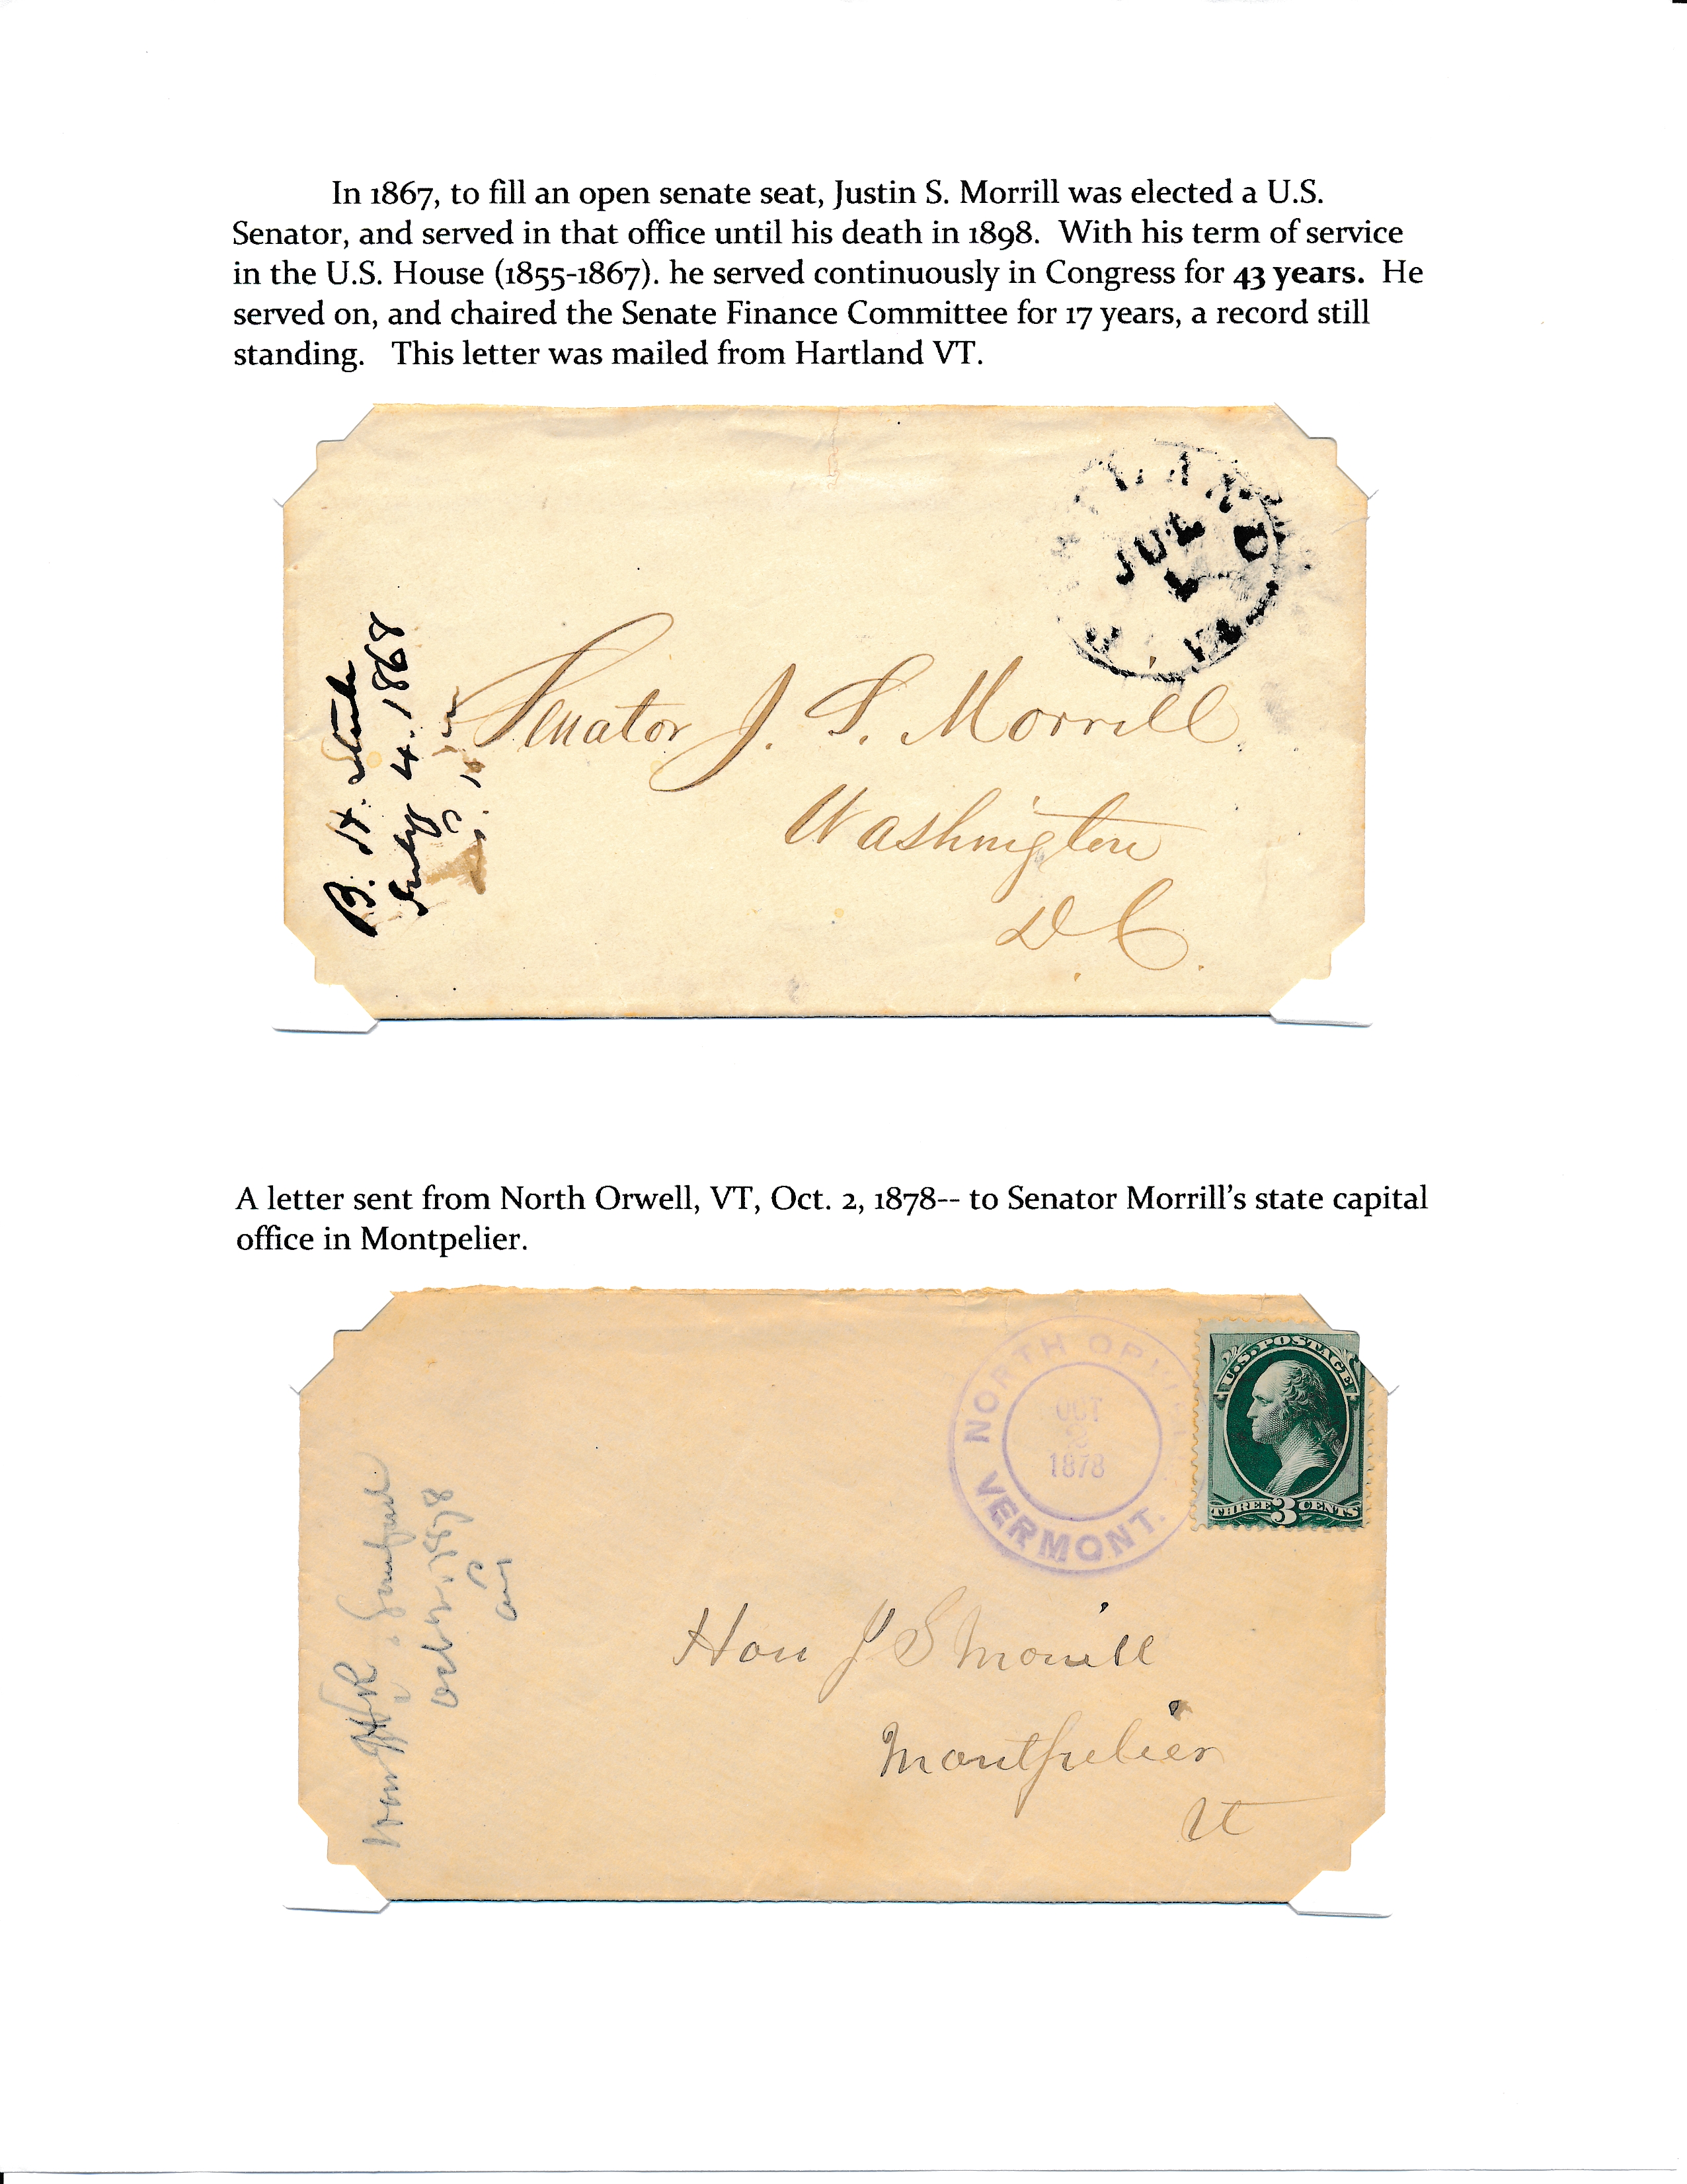 In 1867, to fill an open senate seat, Justin S. Morrill was elected a U.S.
Senator, and served in that office until his death in 1898. With his term of service
in the U.S. House (1855-1867). he served continuously in Congress for 43 years. He
served on, and chaired the Senate Finance Committee for 17 years, a record still
standing. This letter was mailed from Hartland VT.
JUL
Vt.
B. H.
July 4. 1868
Senator J. S. Morrill
Washington
D.C.
A letter sent from North Orwell, VT, Oct. 2, 1878-- to Senator Morrill's state capital
office in Montpelier.
NORTH
OCT
2
1878
VERMONT.
U.S. POSTAGE
THREE 3 CENTS
Oct 2 1878
Hon J S Morrill
Montpelier
Vt